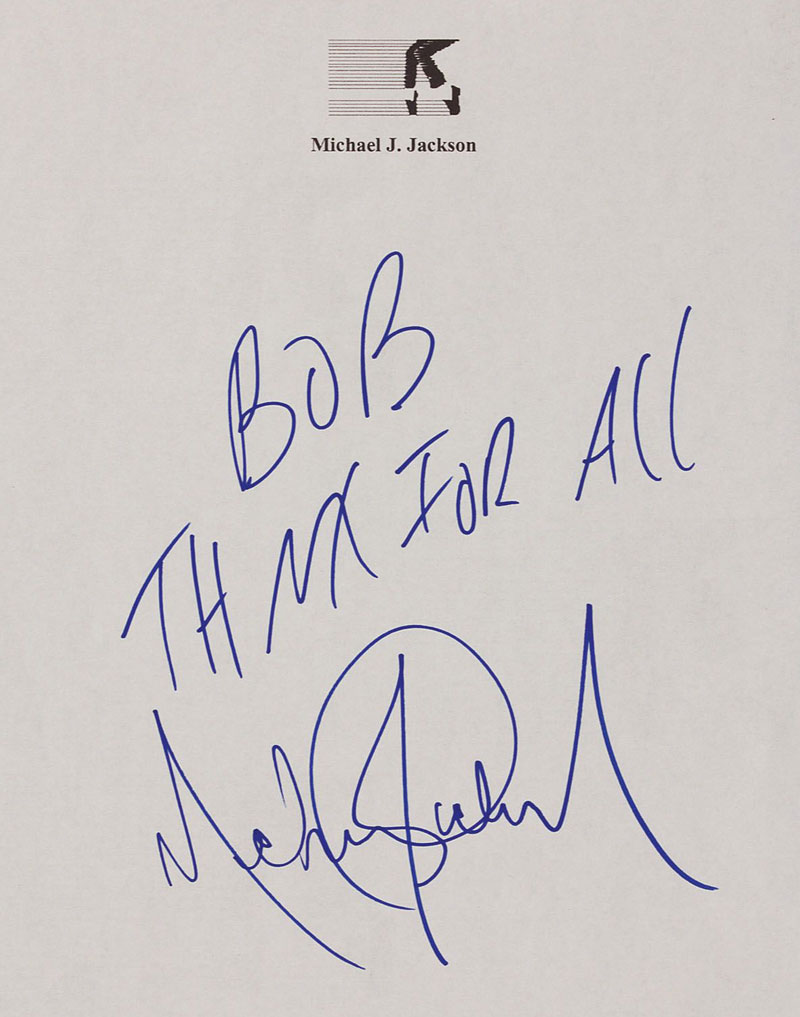 Michael J. Jackson
BOB
THNX FOR All
Michael Jackson